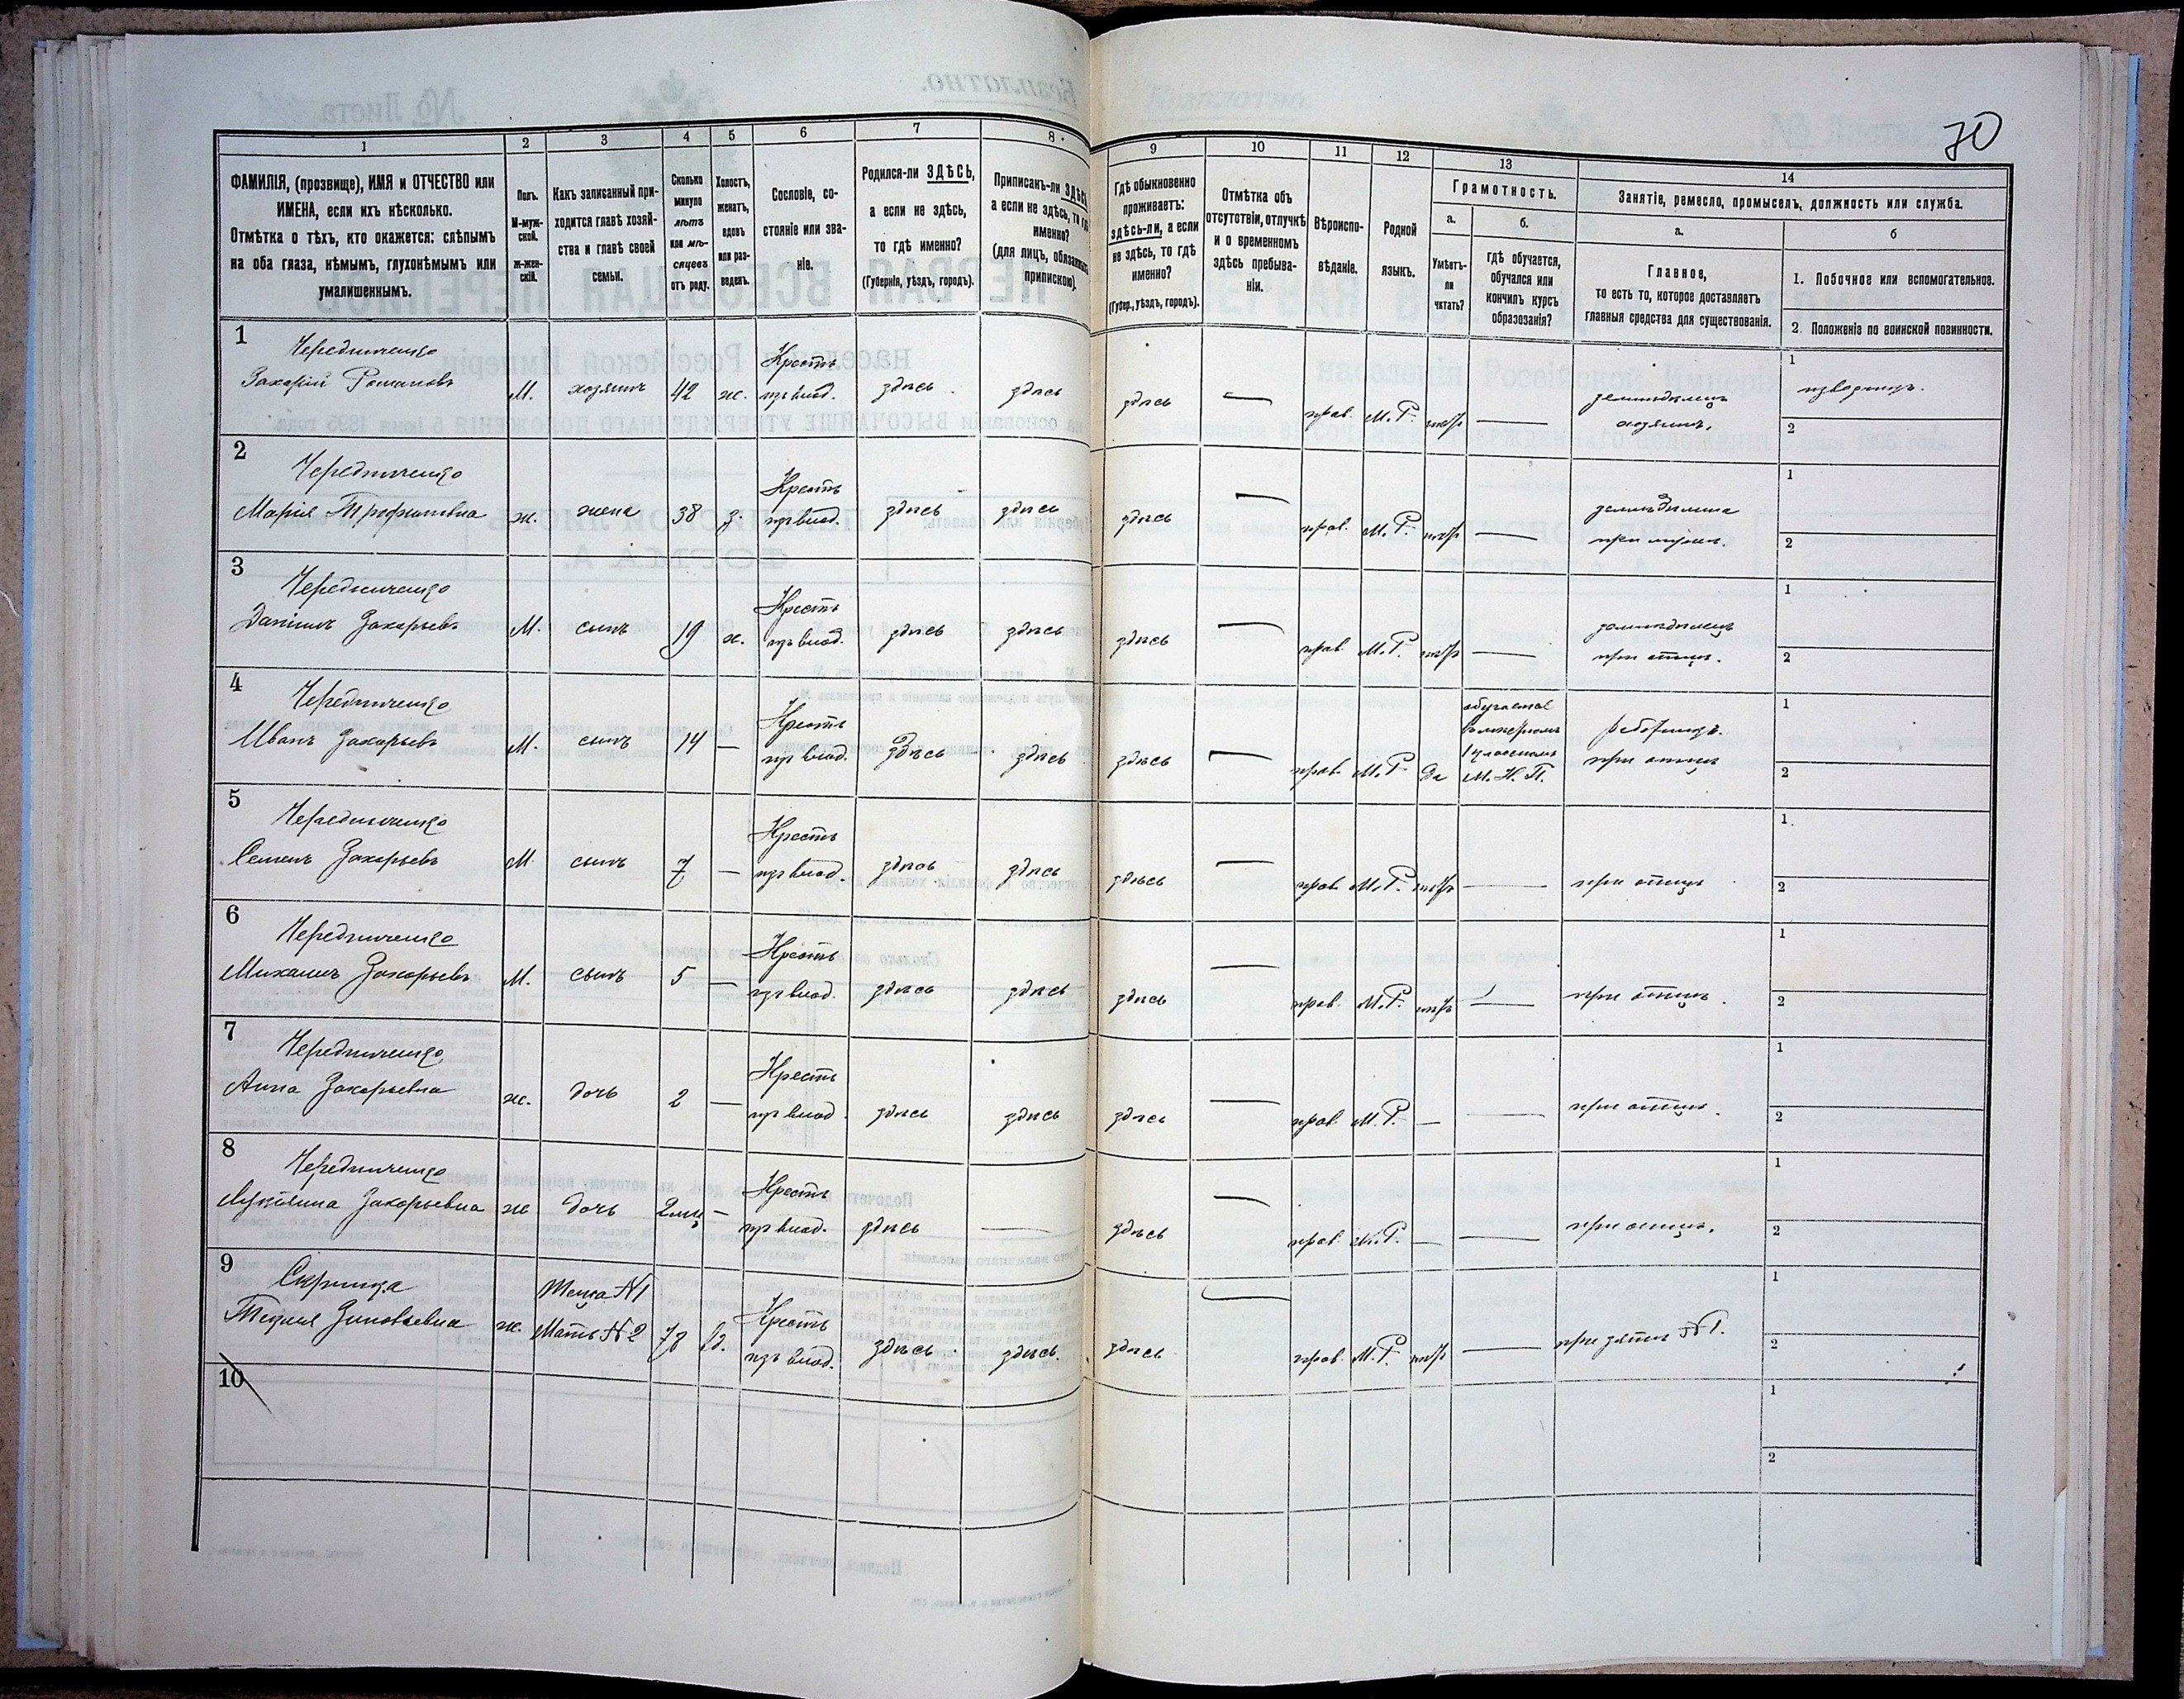 70
1
2
3
4
5
6
7
8
9
10
11
12
13
14
ФАМИЛІЯ, (прозвище), ИМЯ и ОТЧЕСТВО или
ИМЕНА, если ихъ нѣсколько.
Отмѣтка о тѣхъ, кто окажется: слѣпымъ
на оба глаза, нѣмымъ, глухонѣмымъ или
умалишеннымъ.
Полъ.
М-муж-
ской.
ж-жен-
скій.
Какъ записанный при-
ходится главѣ хозяй-
ства и главѣ своей
семьи.
Сколько
минуло
лѣтъ
или мѣ-
сяцевъ
отъ роду.
Холостъ,
женатъ,
вдовъ
или раз-
веденъ.
Сословіе, со-
стояніе или зва-
ніе.
Родился-ли ЗДѢСЬ,
а если не здѣсь,
то гдѣ именно?
(Губернія, уѣздъ, городъ).
Приписанъ-ли ЗДѢСЬ
а если не здѣсь, то гдѣ
именно?
(для лицъ, обязанныхъ
припискою).
Гдѣ обыкновенно
проживаетъ:
здѣсь-ли, а если
не здѣсь, то гдѣ
именно?
(Губер., уѣздъ, городъ).
Отмѣтка объ
отсутствіи, отлучкѣ
и о временномъ
здѣсь пребыва-
ніи.
Вѣроиспо-
вѣданіе.
Родной
языкъ.
Грамотность.
а.
Умѣетъ-
ли
читать?
б.
гдѣ обучается,
обучался или
кончилъ курсъ
образованія?
Занятіе, ремесло, промыселъ, должность или служба.
а.
Главное,
то есть то, которое доставляетъ
главныя средства для существованія.
б
1. Побочное или вспомогательное.
2. Положеніе по воинской повинности.
1
Чередниченко
Захарій Романовъ
М.
хозяинъ
42
ж.
Крестъ
изъ влад.
здѣсь
здѣсь
здѣсь
—
прав.
М. Р.
негр
—
земледѣлецъ
хозяинъ.
1
извощикъ.
2
2
Чередниченко
Марія Трофимовна
ж.
жена
38
з.
Крестъ
изъ влад.
здѣсь
здѣсь
здѣсь
—
прав.
М. Р.
негр
—
при мужѣ.
1
2
3
Чередниченко
Даніилъ Захарьевъ
М.
сынъ
19
х.
Крестъ
изъ влад.
здѣсь
здѣсь
здѣсь
—
прав
М. Р.
негр
—
земледѣлецъ
при отцѣ.
1
2
4
Чередниченко
Иванъ Захарьевъ
М.
сынъ
14
—
Крестъ
изъ влад.
здѣсь
здѣсь
здѣсь
—
прав.
М. Р.
Да
обучается
1 классномъ
М. Н. П.
при отцѣ
1
2
5
Чередниченко
Семенъ Захарьевъ
М
сынъ
7
—
Крестъ
изъ влад.
здѣсь
здѣсь
здѣсь
—
прав
М. Р.
негр
—
при отцѣ
1
2
6
Чередниченко
Михаилъ Захарьевъ
М.
сынъ
5
—
Крестъ
изъ влад.
здѣсь
здѣсь
здѣсь
—
прав.
М. Р.
негр
—
при отцѣ.
1
2
7
Чередниченко
Анна Захарьевна
ж.
дочь
2
—
Крестъ
изъ влад.
здѣсь
здѣсь
здѣсь
—
прав.
М. Р.
—
—
при отцѣ.
1
2
8
Чередниченко
Лукіяна Захарьевна
ж
дочь
2 мц
—
Крестъ
изъ влад.
здѣсь
—
здѣсь
—
прав.
М. Р.
—
—
при отцѣ.
1
2
9
Скрипка
Текля Зиновьевна
ж.
Теща №1
Мать №2
вд.
Крестъ
изъ влад.
здѣсь
здѣсь.
здѣсь
—
прав.
М. Р.
негр
—
при зятѣ №1.
1
2
10
1
2